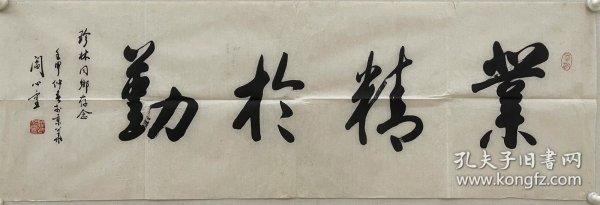 業精於勤
珍林同鄉存念
壬申仲春於京華
閻心重
孔夫子旧书网
www.kongfz.com